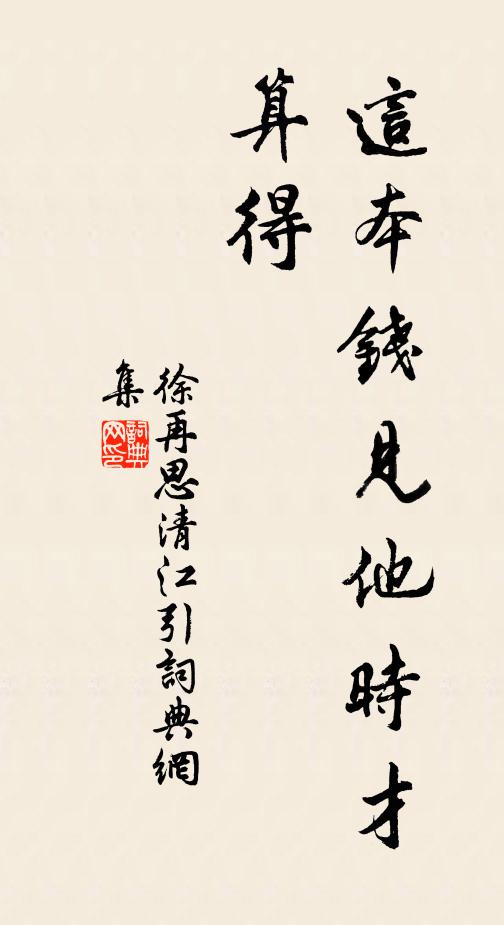 這本錢見他時才
算得
徐再思清江引詞典網
集
詞典
网印